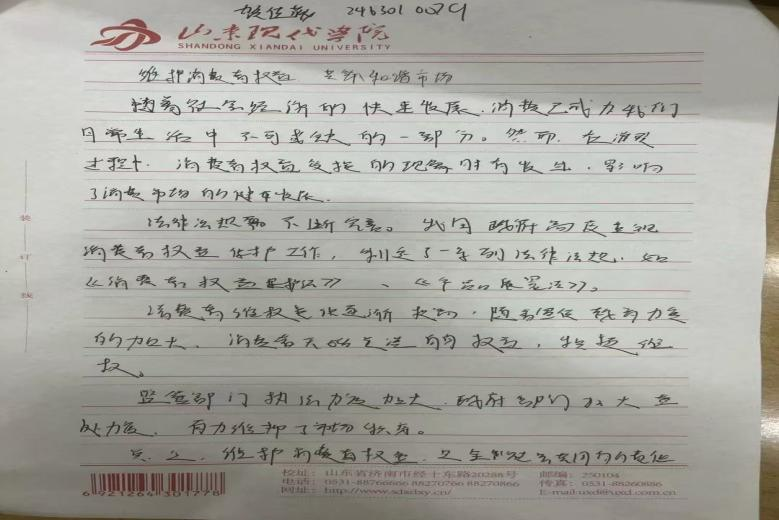 246301 0029
山东现代学院
SHANDONG XIANDAI UNIVERSITY
维护消费者权益 共筑和谐市场
随着社会经济的快速发展,消费已成为我们
日常生活中不可或缺的一部分。然而,在消费
过程中,消费者权益受损的现象时有发生,影响
了消费市场的健康发展.
法律法规 不断完善。我国政府高度重视
消费者权益保护工作,制定了一系列法律法规,如
《消费者权益保护法》、《产品质量法》。
消费者维权意识逐渐 ,随着 教育力度
的加大,消费者开始关注自身权益,积极维
权。
监管部门执法力度加大,政府部门加大查
处力度,有力维护了市场秩序。
总之,维护消费者权益,是全社会共同的责任
装订线
校址:山东省济南市经十东路20288号 邮编:250104
电话:0531-88766666 88270766 88270866 传真:0531-8826086
网址:http://www.sdxdxy.cn/ E-mail:uxd@uxd.com.cn
6 921264 301778